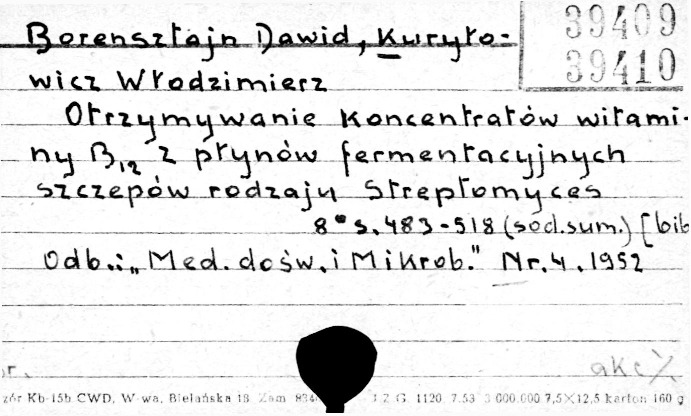 39409
39410
Borensztajn Dawid, Kuryło-
wicz Włodzimierz
Otrzymywanie koncentratów witami-
ny B₁₂ z płynów fermentacyjnych
szczepów rodzaju Streptomyces
8° s. 483-518 (sod.sum.) [bib
Odb.: „Med. dośw. i Mikrob." Nr. 4. 1952
akc
r.
zór Kb-15b CWD, W-wa, Bielańska 18 Zam 1120 7.53 3 000.000 7,5×12,5 karton 160 g